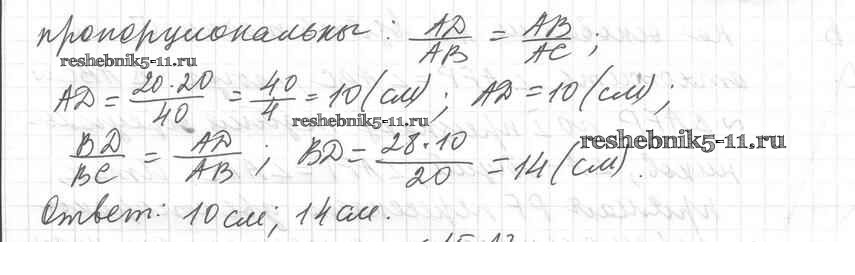 пропорциональны: AD/AB = AB/AC;
reshebnik5-11.ru
AD = 20·20/40 = 40/4 = 10 (см); AD = 10 (см);
reshebnik5-11.ru
reshebnik5-11.ru
BD/BC = AD/AB; BD = 28·10/20 = 14 (см).
Ответ: 10 см; 14 см.